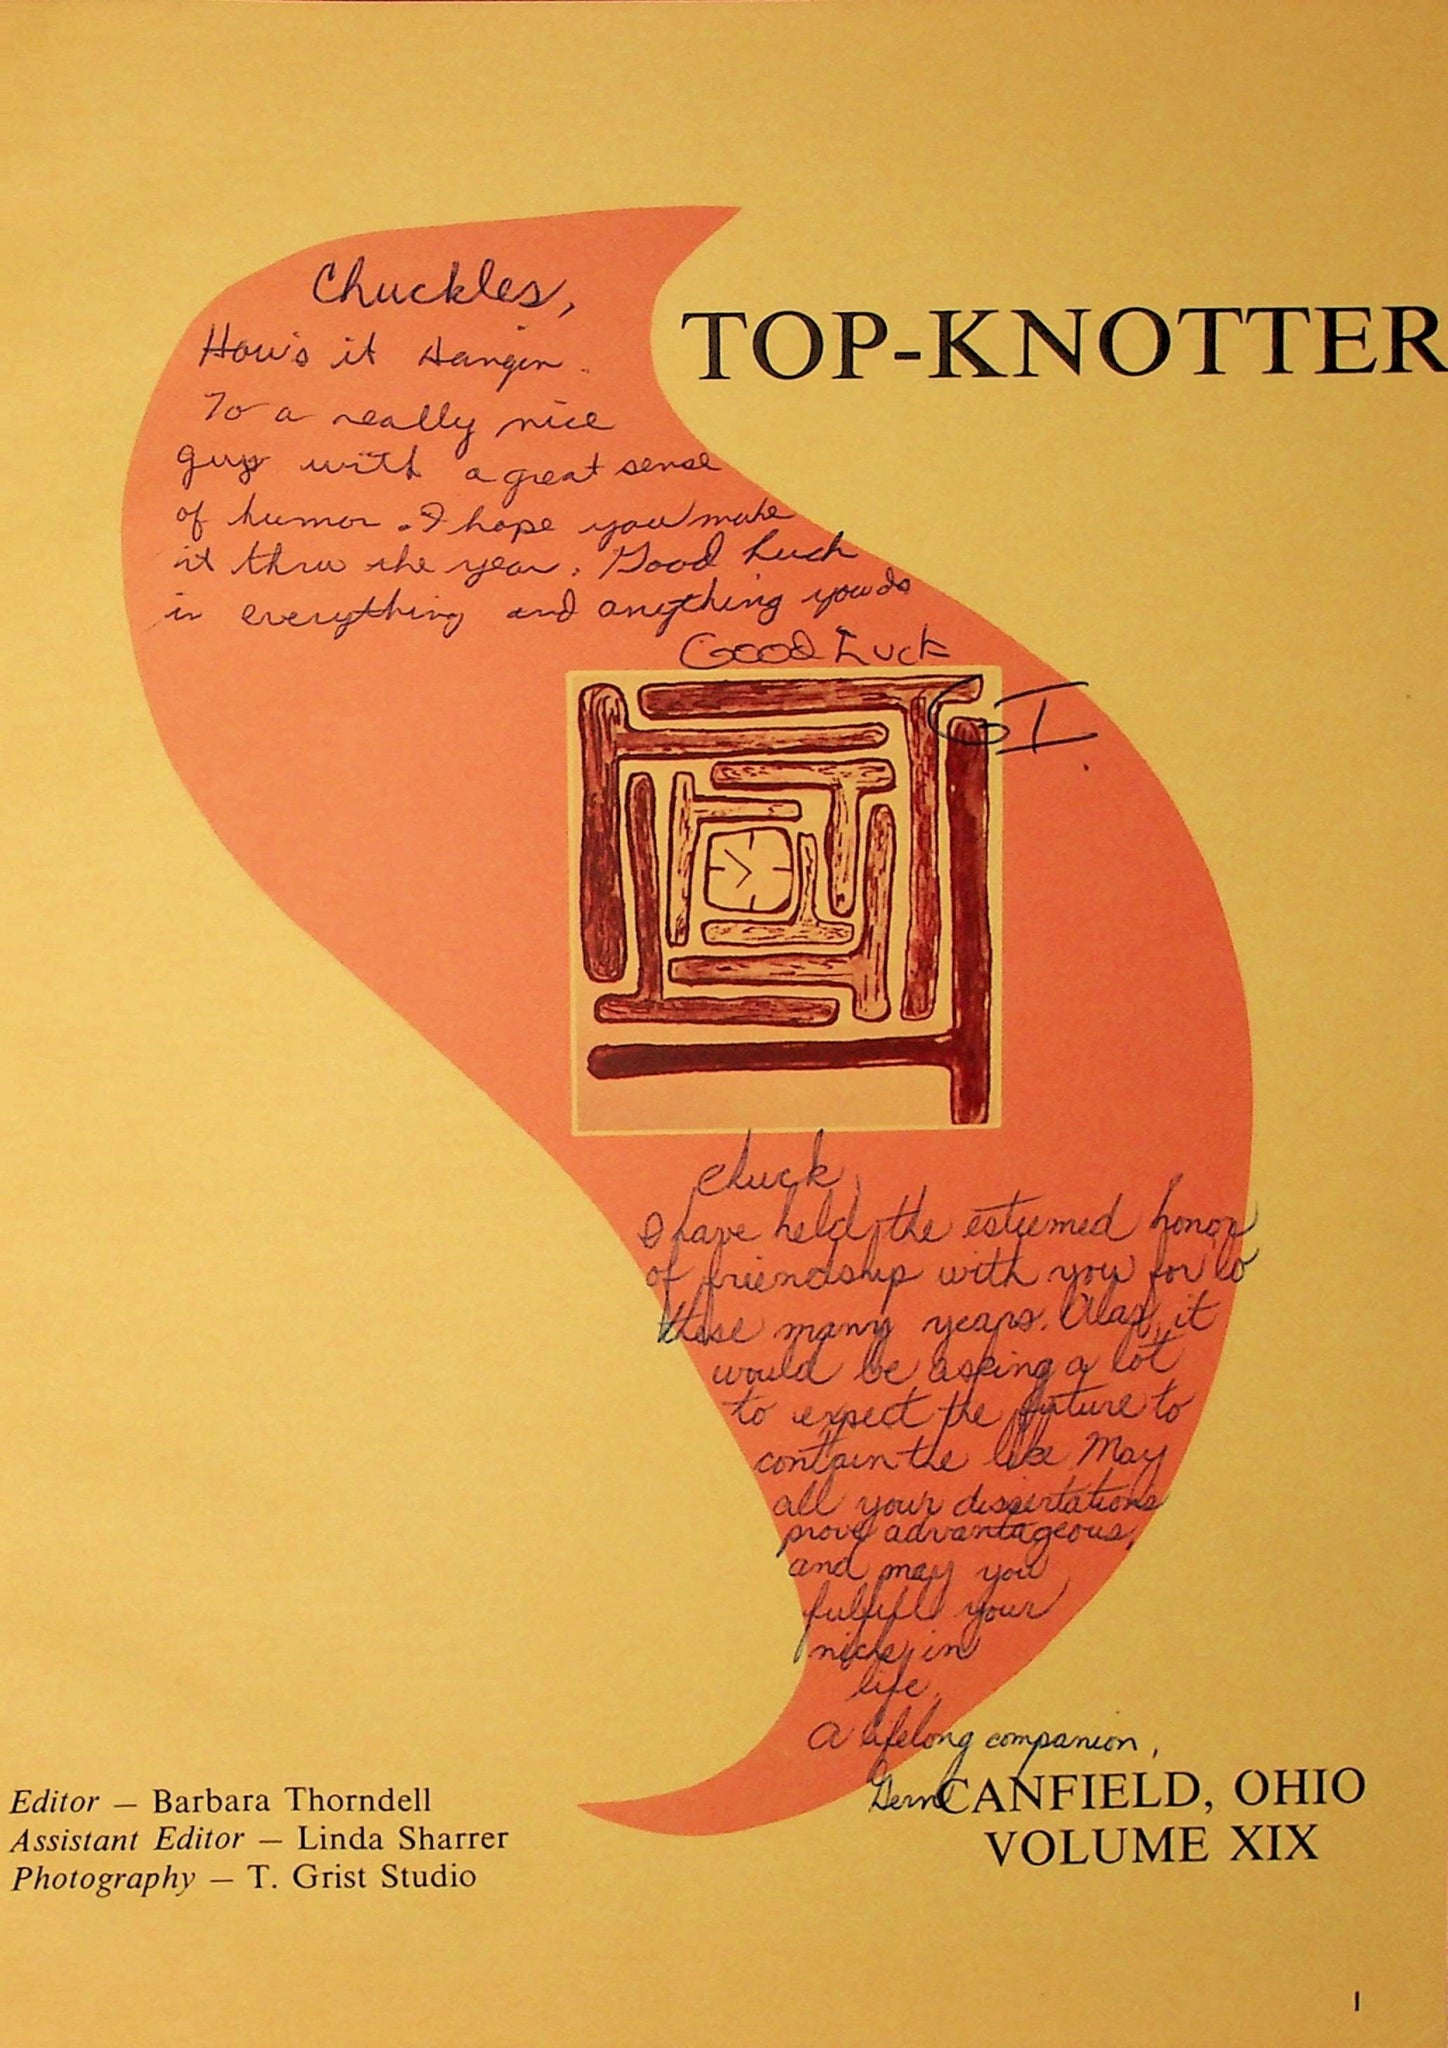 Chuckles,
How's it Hangin.
TOP-KNOTTER
To a really nice
guy with a great sense
of humor. I hope you make
it thru the year. Good Luck
in everything and anything you do
Good Luck
GI.
Chuck,
I have held the esteemed honor
of friendship with you for lo
these many years. Alas, it
would be asking a lot
to expect the future to
contain the like. May
all your dissertations
prove advantageous,
and may you
fulfill your
niche in
life.
A lifelong companion,
CANFIELD, OHIO
VOLUME XIX
Editor — Barbara Thorndell
Assistant Editor — Linda Sharrer
Photography — T. Grist Studio
1